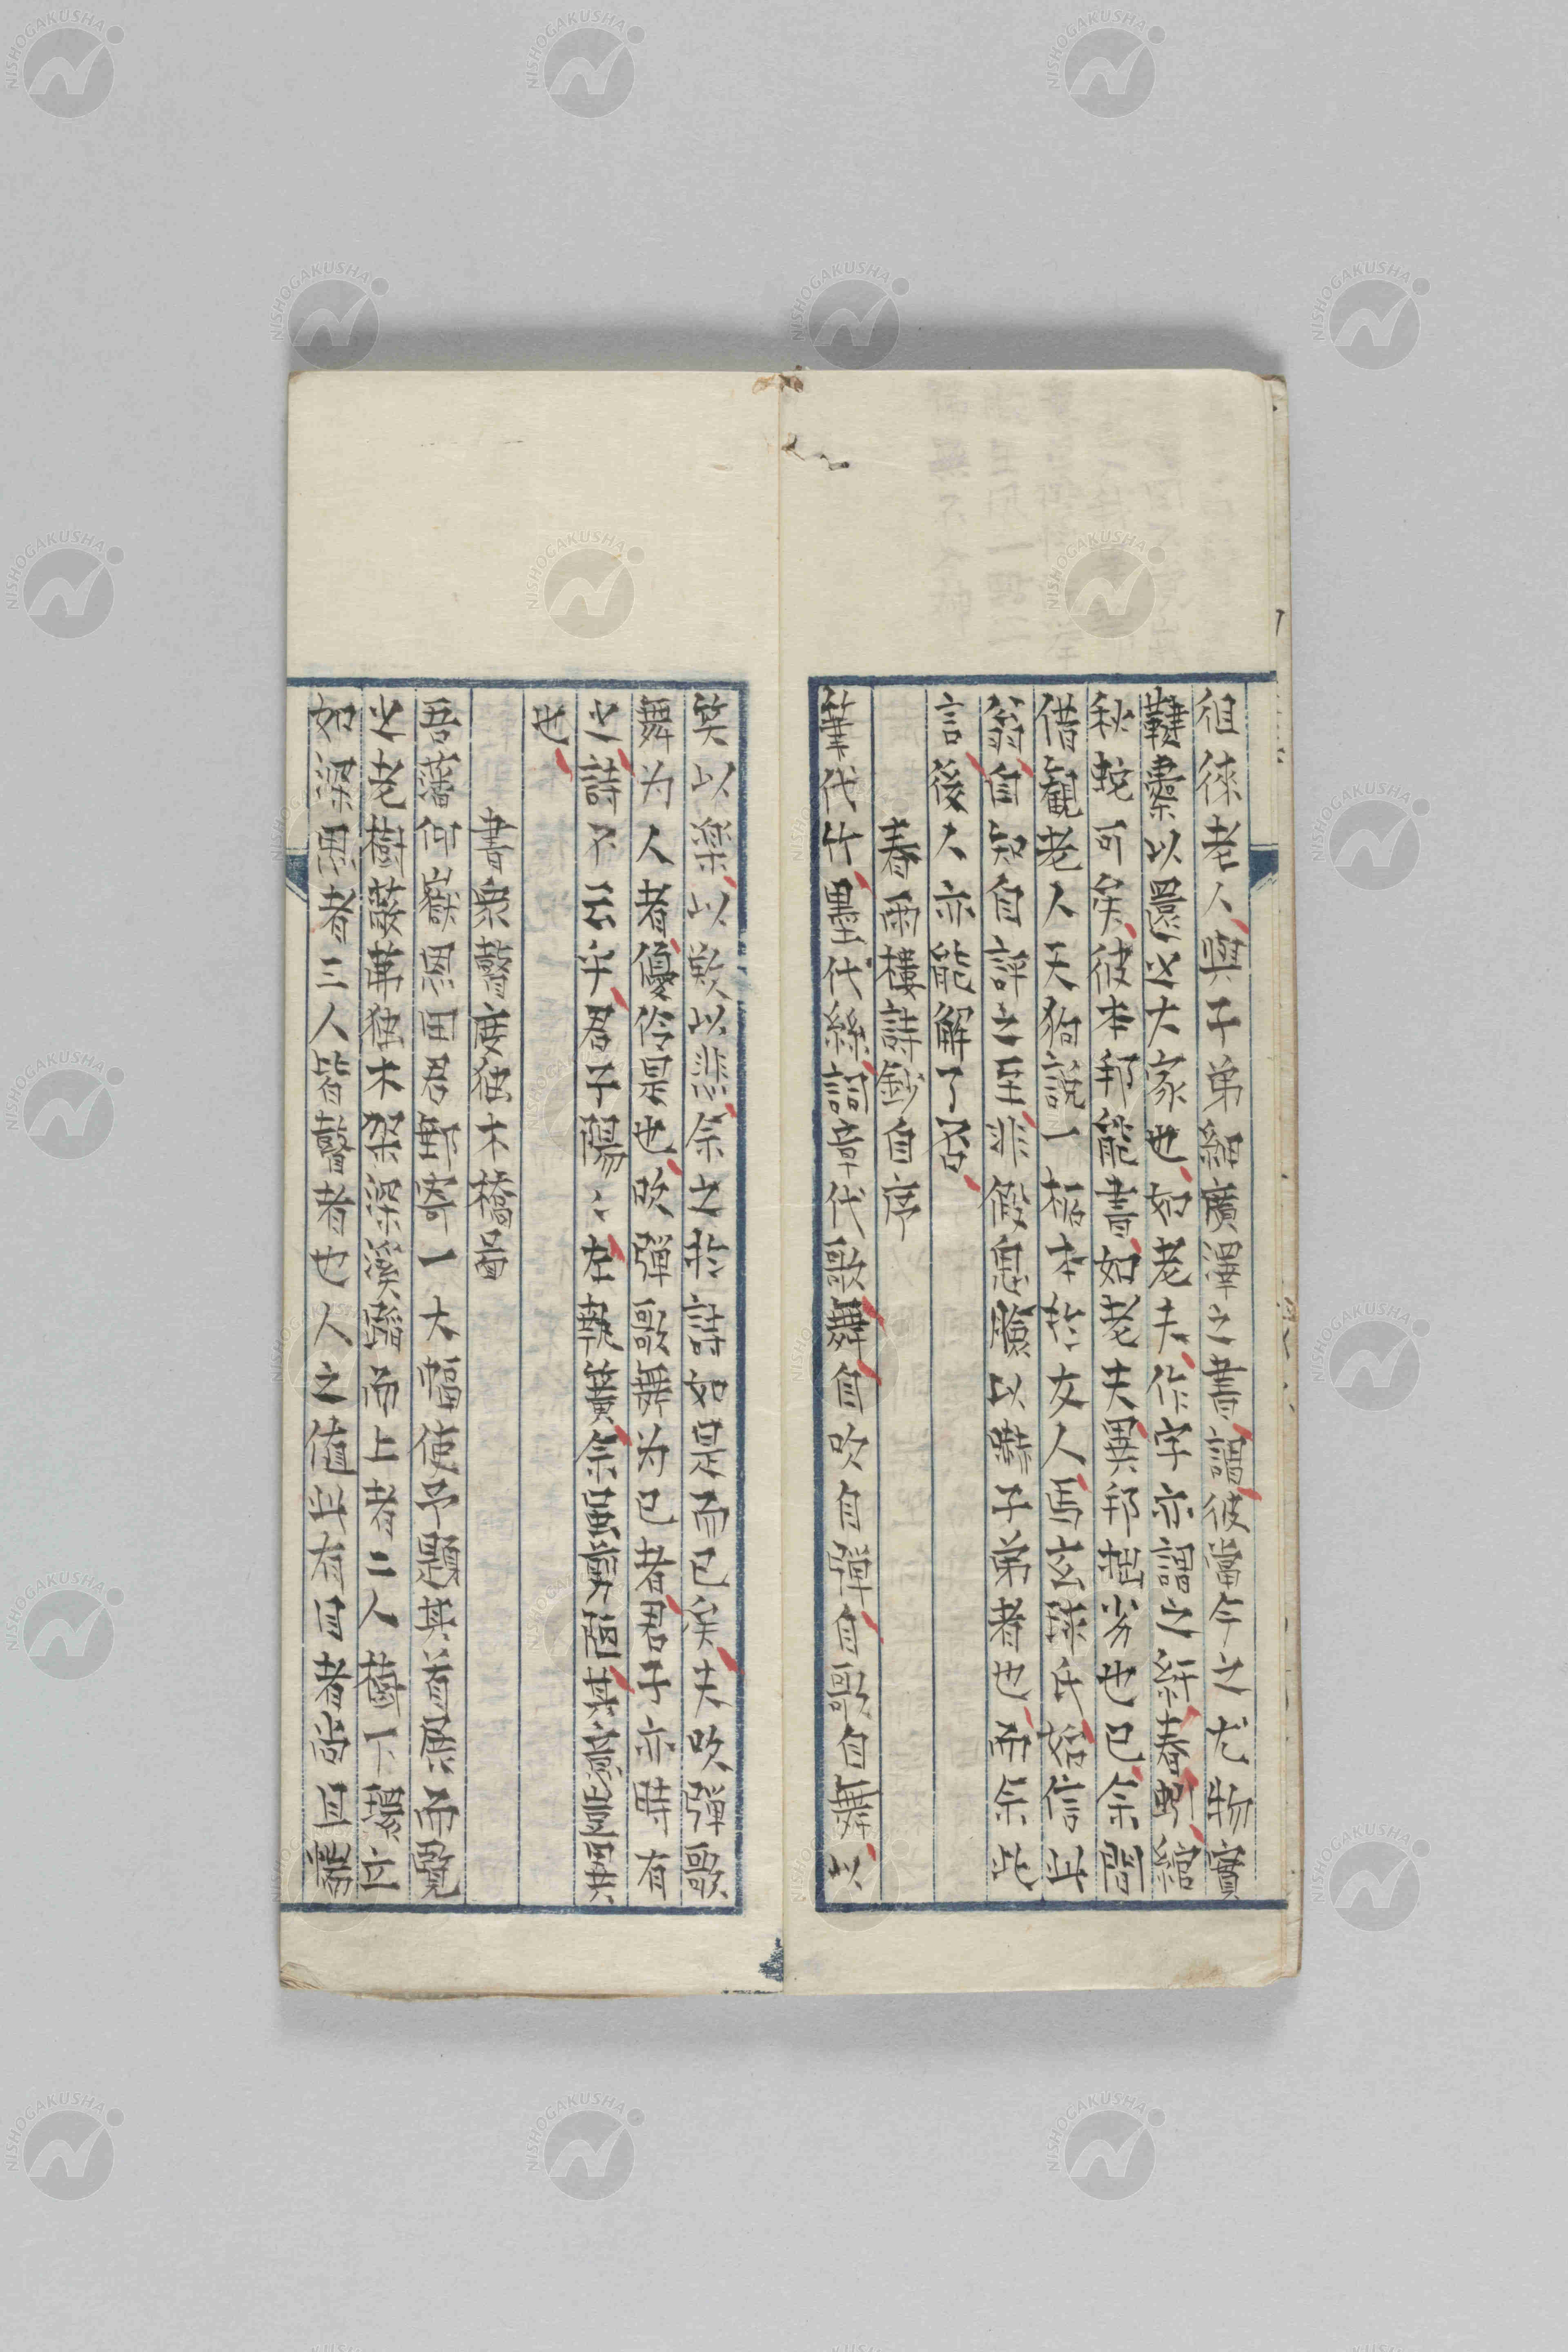 徂徠老人與子弟細廣澤之書謂彼當今之尤物實
鞬櫜以還之大家也如老夫作字亦謂之綵春蚓綰
秋蛇可矣彼本邦能書如老夫異邦拙劣也已余閒
借觀老人天狗說一榻本於友人馬玄錄氏始信此
翁自知自評之至非假息臉以嚇子弟者也而余此
言後人亦能解了否
春雨樓詩鈔自序
筆代竹墨代絲詞章代歌舞自吹自彈自歌自舞以
笑以樂以歎以悲余之於詩如是而已矣夫吹彈歌
舞为人者優伶是也吹彈歌舞为己者君子亦時有
之詩不云乎君子陽々左執簧余虽窮陋其意豈異
也
書衆瞽度独木橋啚
吾藩何嶽恩田君郵寄一大幅使予題其首展而覽
之老樹蔽芾独木架梁溪齶而上者二人樹下環立
如深思者三人皆瞽者也人之值此有目者尚且惴